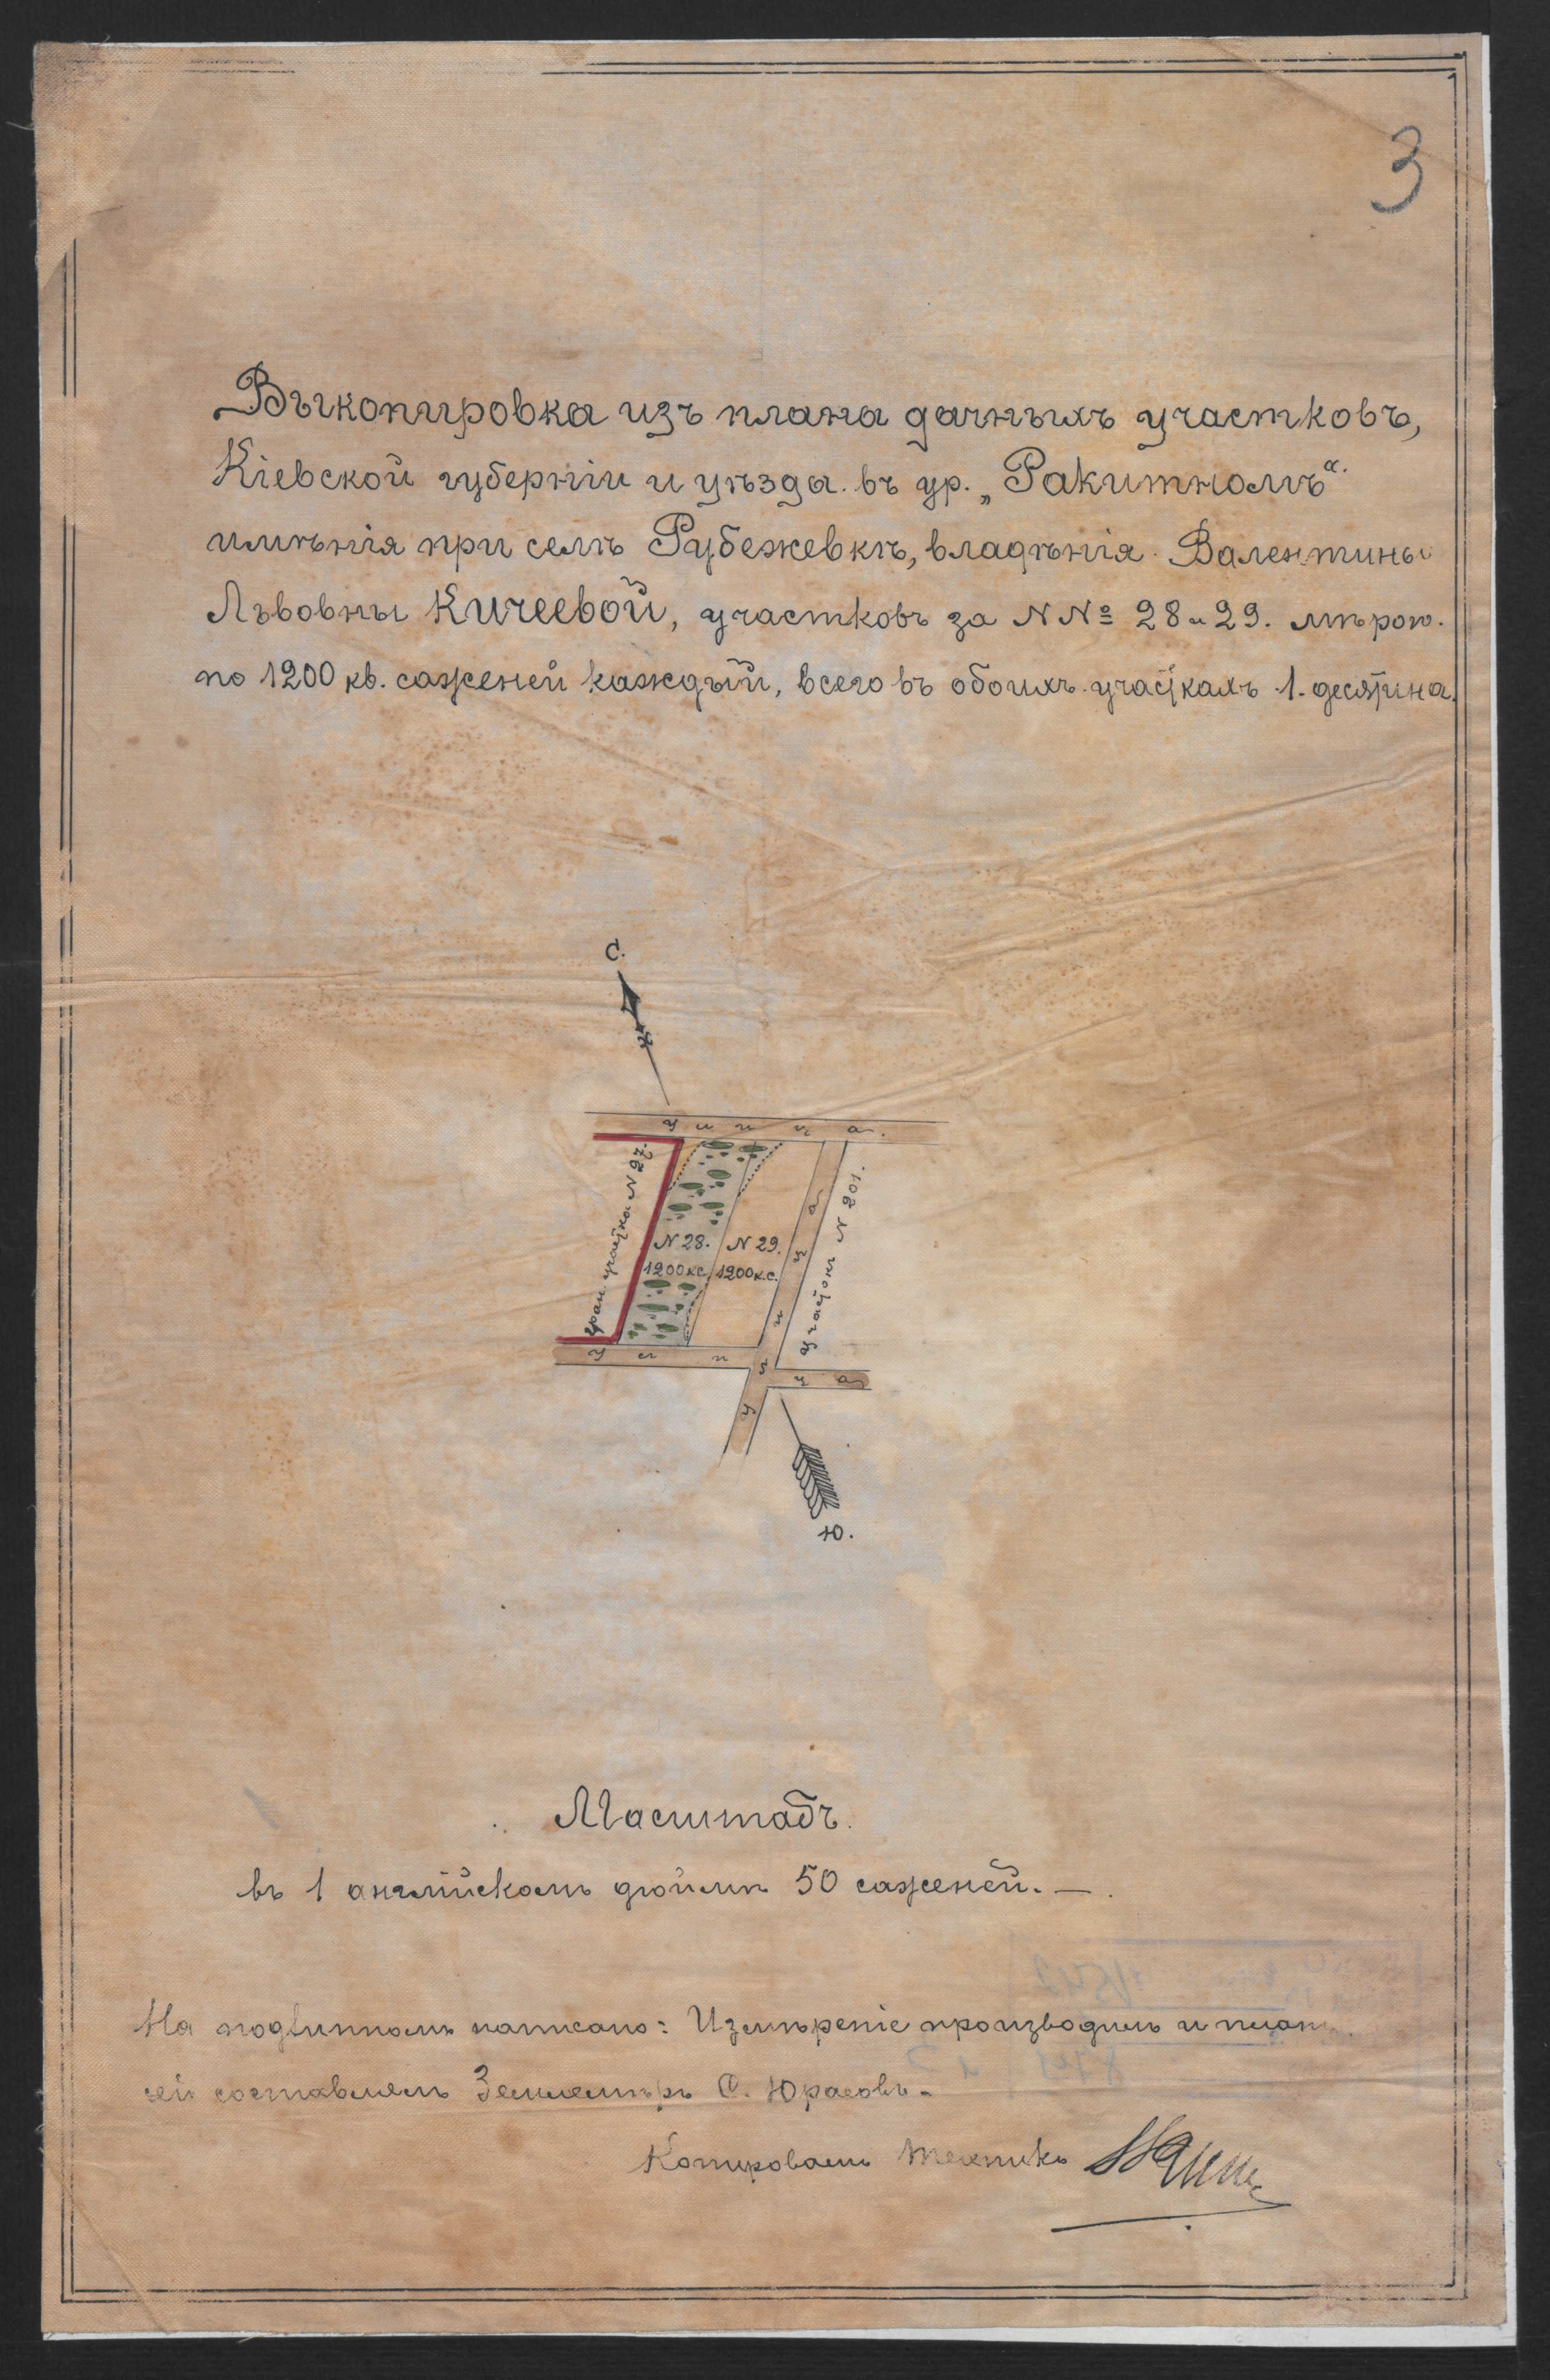 3
Выкопировка изъ плана дачныхъ участковъ,
Кіевской губерніи и уѣзда. въ ур. „Ракитномъ“.
имѣнія при селѣ Рубежевкѣ, владѣнія Валентины
Львовны Кичеевой, участковъ за N Nº 28 и 29. мѣрою.
по 1200 кв. саженей каждый, всего въ обоихъ участкахъ 1. десятина.
С.
улица.
гран. участка N 27.
N 28.
1200 к.с.
N 29.
1200 к.с.
улица
участокъ N 201.
улица
Ю.
Масштабъ.
въ 1 англійскомъ дюймѣ 50 саженей. —.
На подлинномъ написано: Измѣреніе производилъ и планъ
сей составлялъ Землемѣръ С. Юрасовъ.
Копировалъ техникъ